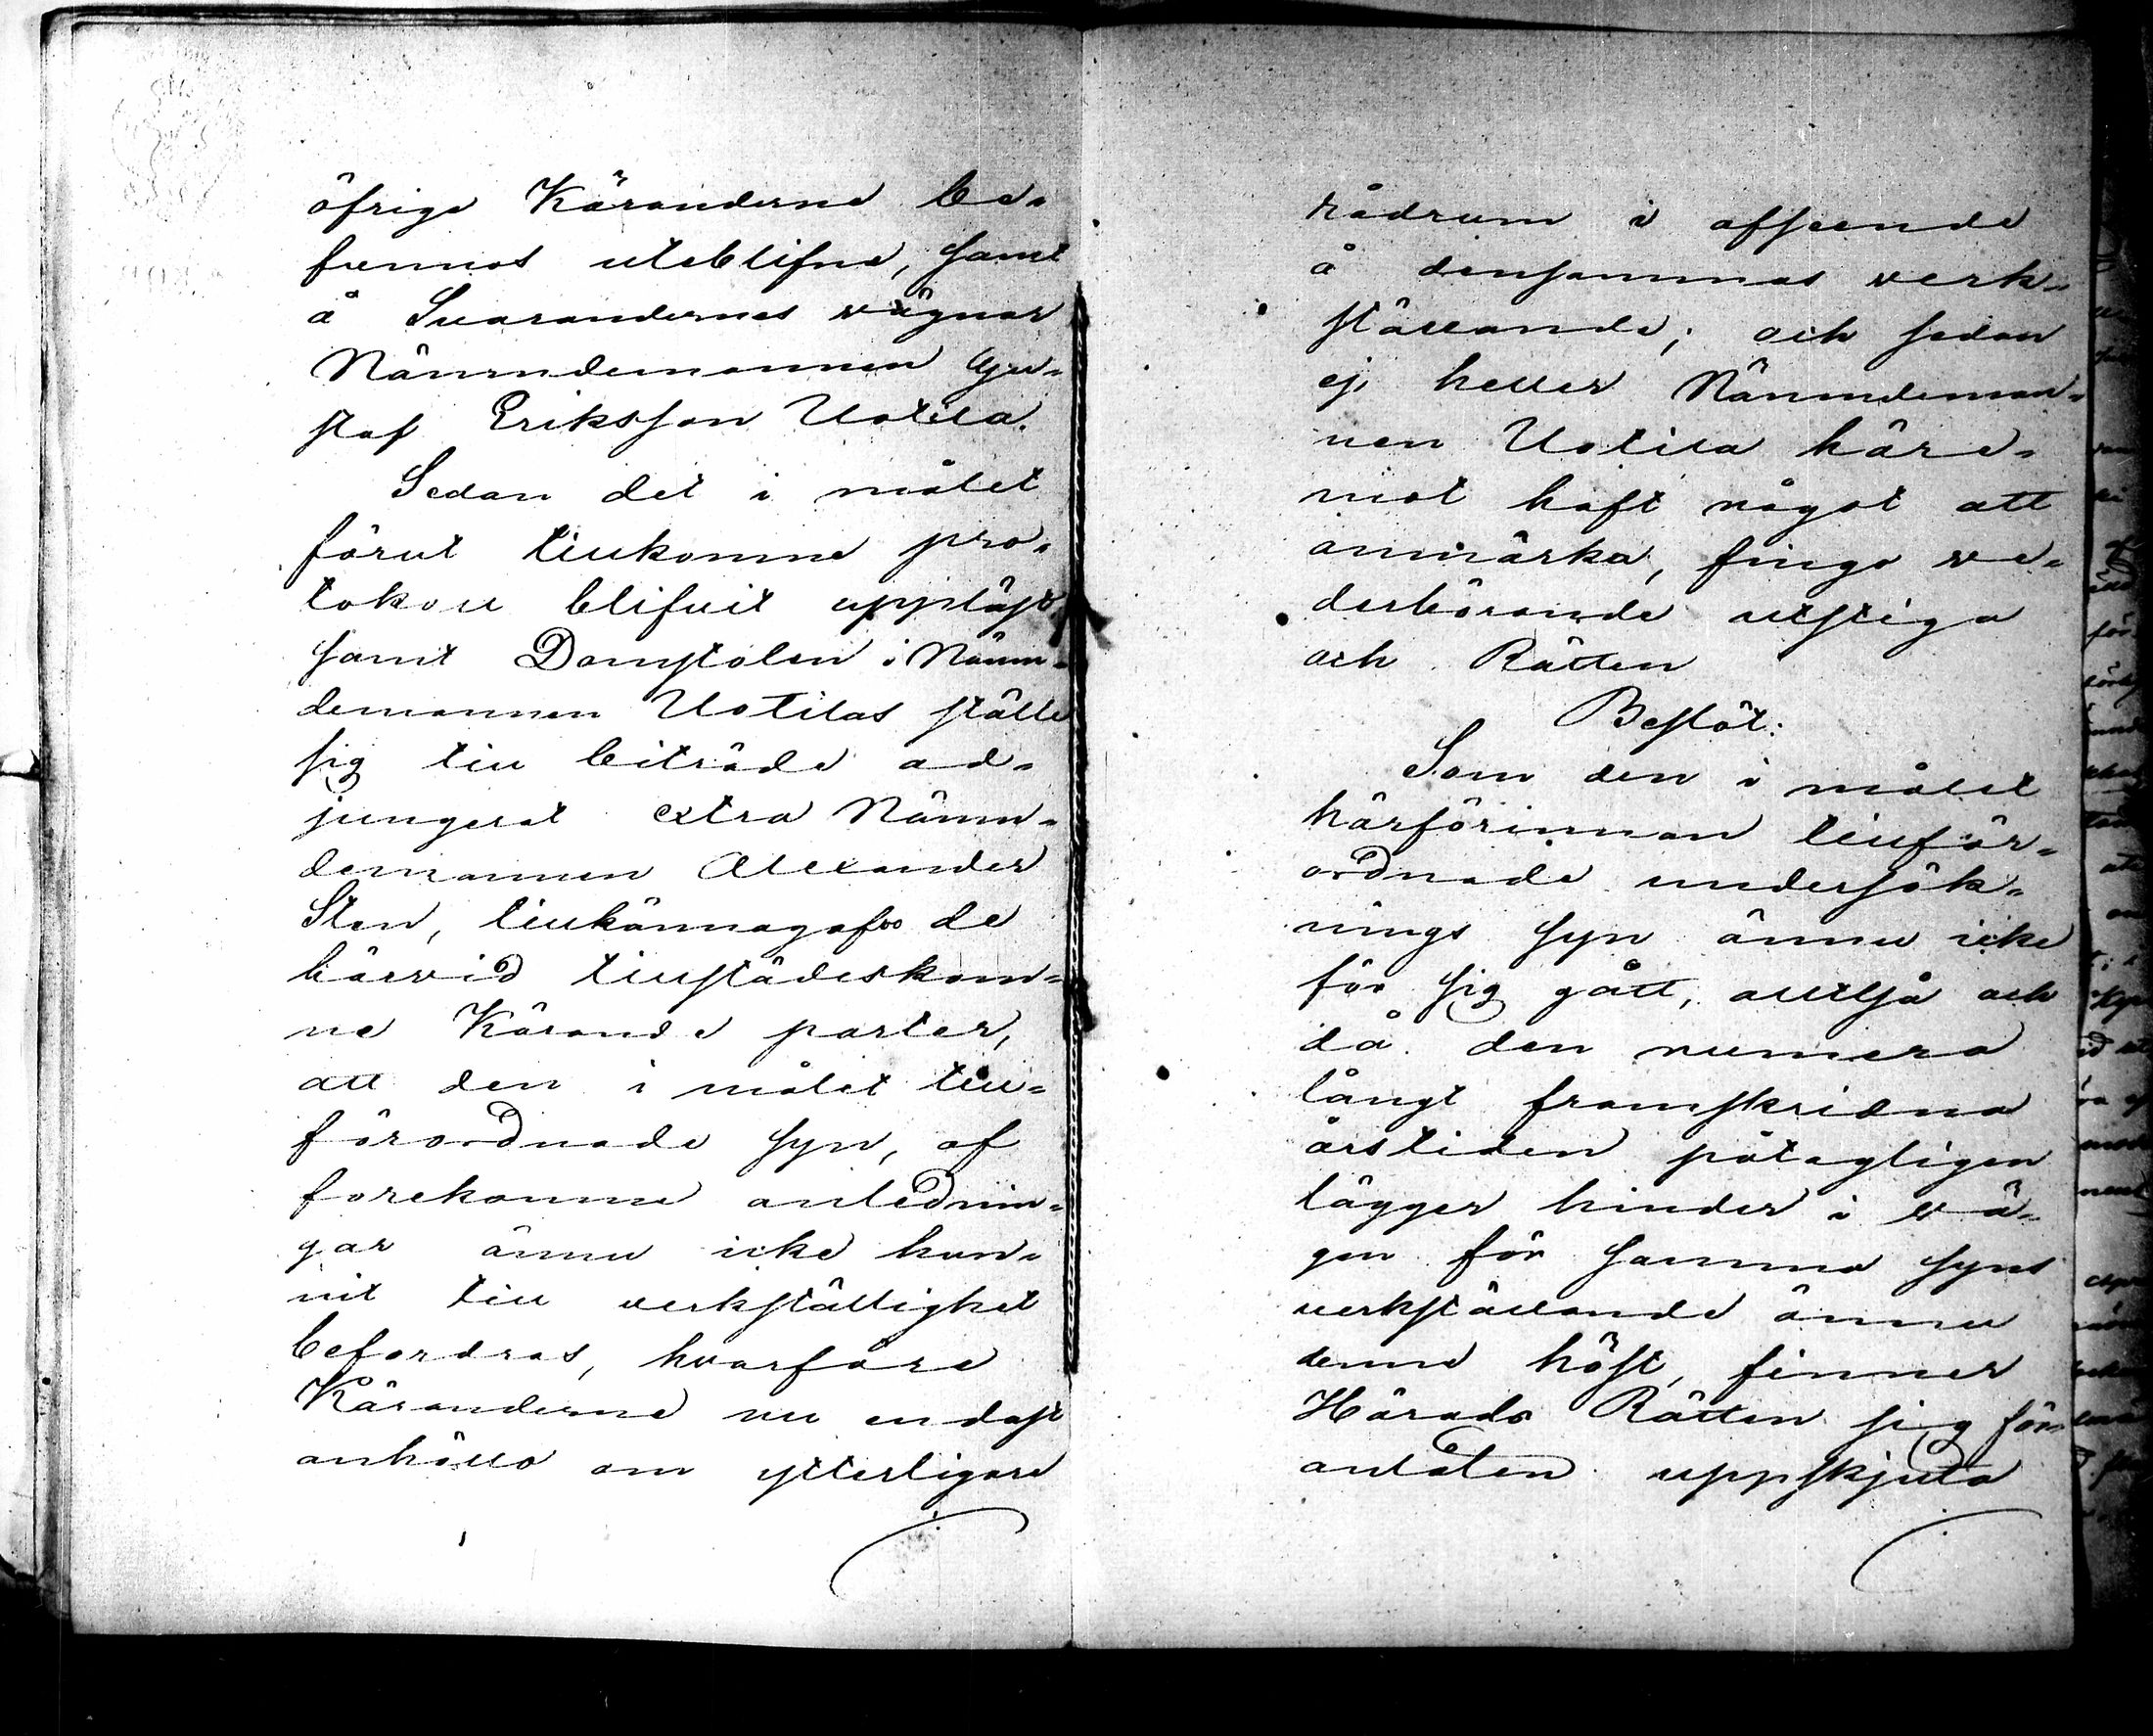 öfrige Käranderne be-
funnos uteblifne, samt
å Svarandernes vägnar
Nämndemannen Gu-
staf Eriksson Uotila.
Sedan det i målet
förut tillkomne pro-
tokoll blifvit uppläst,
samt Domstolen i Näm-
demannen Uotilas ställe
sig till biträde ad-
jungerat extra Nämn-
demannen Alexander
Sten, tillkännagåfvo de
härvid tillstädeskom-
ne Kärande parter,
att den i målet till-
förordnade syn, af
förekomne anlednin-
gar ännu icke hun-
nit till verkställighet
befordras, hvarföre
Käranderne nu endast
anhöllo om ytterligare
rådrum i afseende
å densammas verk-
ställande; och sedan
ej heller Nämndeman-
nen Uotila häre-
mot haft något att
anmärka, fingo ve-
derbörande utstiga
och Rätten
Beslöt:
Som den i målet
härförinnan tillför-
ordnade undersök-
nings syn ännu icke
för sig gått, alltså och
då den numera
långt framskridna
årstiden påtagligen
lägger hinder i vä-
gen för samma syns
verkställande ännu
denne höst, finner
Härads Rätten sig för-
anlåten uppskjuta